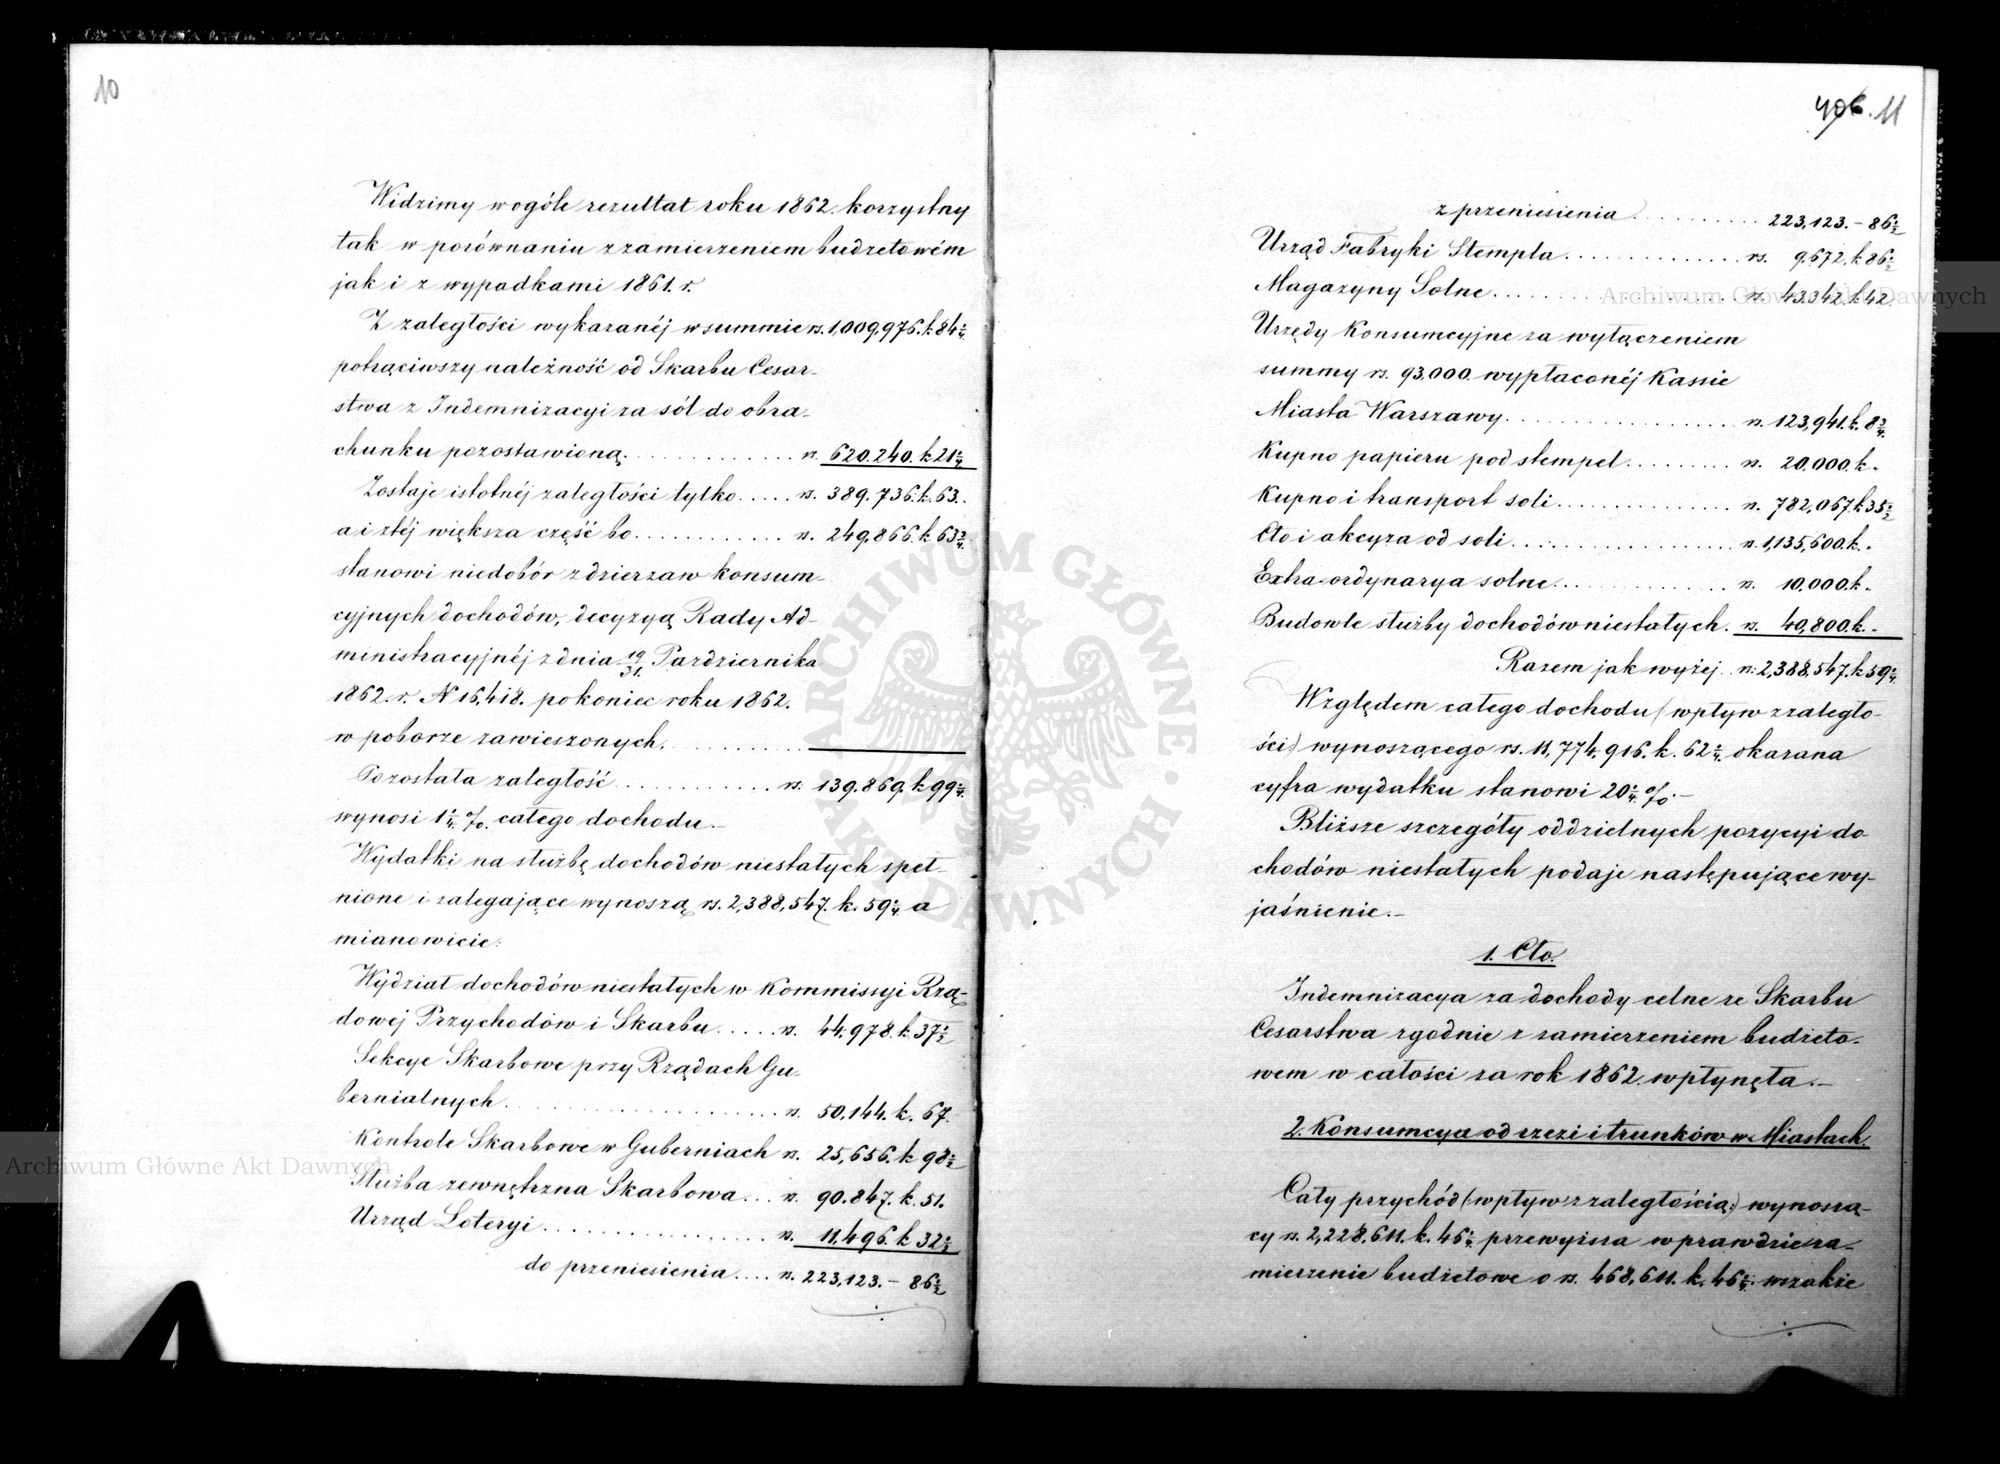 10
Widzimy w ogóle rezultat roku 1862. korzystny
tak w porównaniu z zamierzeniem budżetowém
jak i z wypadkami 1861. r.
Z zaległości wykazanéj w summie rs. 1,009,976. k. 84 2/4.
potrąciwszy należność od Skarbu Cesar-
stwa z Indemnizacyi za sól do obra-
chunku pozostawioną . . . rs. 620.240. k. 21 2/4
Zostaje istotnéj zaległości tylko . . . . . rs. 389.736. k. 63.
a i z téj większa część bo . . . rs. 249,866. k. 63 3/4.
stanowi niedobór z dzierżaw konsum-
cyjnych dochodów, decyzyą Rady Ad-
ministracyjnéj z dnia 19/31. Pazdziernika
1862. r. N 16,418. po koniec roku 1862.
w poborze zawieszonych. . . .
Pozostała zaległość . . . rs. 139.869. k. 99 1/4.
wynosi 1 1/4. %. całego dochodu.–
Wydatki na służbę dochodów niestałych speł-
nione i zalegające wynoszą rs. 2,388,547. k. 59 1/4. a
mianowicie:
Wydział dochodów niestałych w Kommissyi Rzą-
dowej Przychodów i Skarbu . . . . . rs. 44,978. k. 37 1/2
Sekcye Skarbowe przy Rządach Gu-
bernialnych . . . rs. 50,144. k. 67.
Kontrole Skarbowe w Guberniach rs. 25,656. k. 98 1/2
Służba zewnętrzna Skarbowa . . . rs. 90.847. k. 51.
Urząd Loteryi . . . rs. 11,496. k. 32 1/2
do przeniesienia . . . . rs. 223,123. – 86 1/2
406. 11
z przeniesienia . . . 223,123. – 86 1/2
Urząd Fabryki Stempla . . . rs. 9,672. k. 86 1/2
Magazyny Solne . . . rs. 43,342. k. 42.
Urzędy Konsumcyjne za wyłączeniem
summy rs. 93,000. wypłaconéj Kassie
Miasta Warszawy . . . rs. 123,941. k. 8 3/4.
Kupno papieru pod stempel . . . rs. 20,000. k. -
Kupno i transport soli . . . rs. 782,067. k. 35 1/2
Cło i akcyza od soli . . . rs. 1,135,600. k. -
Extra-ordynarya solne . . . rs. 10,000. k. -
Budowle służby dochodów niestałych . rs. 40,800. k. -
Razem jak wyżej . . rs. 2,388,547. k. 59 1/4.
Względem całego dochodu (wpływ z zaległo-
ści) wynoszącego rs. 11,774,916. k. 62 2/4. okazana
cyfra wydatku stanowi 20 1/4. %.–
Bliższe szczegóły oddzielnych pozycyi do-
chodów niestałych podaje następujące wy-
jaśnienie.–
1. Cło.
Indemnizacya za dochody celne ze Skarbu
Cesarstwa zgodnie z zamierzeniem budżeto-
wem w całości za rok 1862. wpłynęła.–
2. Konsumcya od rzezi i trunków w Miastach.
Cały przychód (wpływ z zaległością) wynoszą-
cy rs. 2,228,611. k. 46 2/4. przewyższa wprawdzie za-
mierzenie budżetowe o rs. 468,611. k. 46 2/4. wszakże
ARCHIWUM GŁÓWNE AKT DAWNYCH
Archiwum Główne Akt Dawnych
Archiwum Główne Akt Dawnych